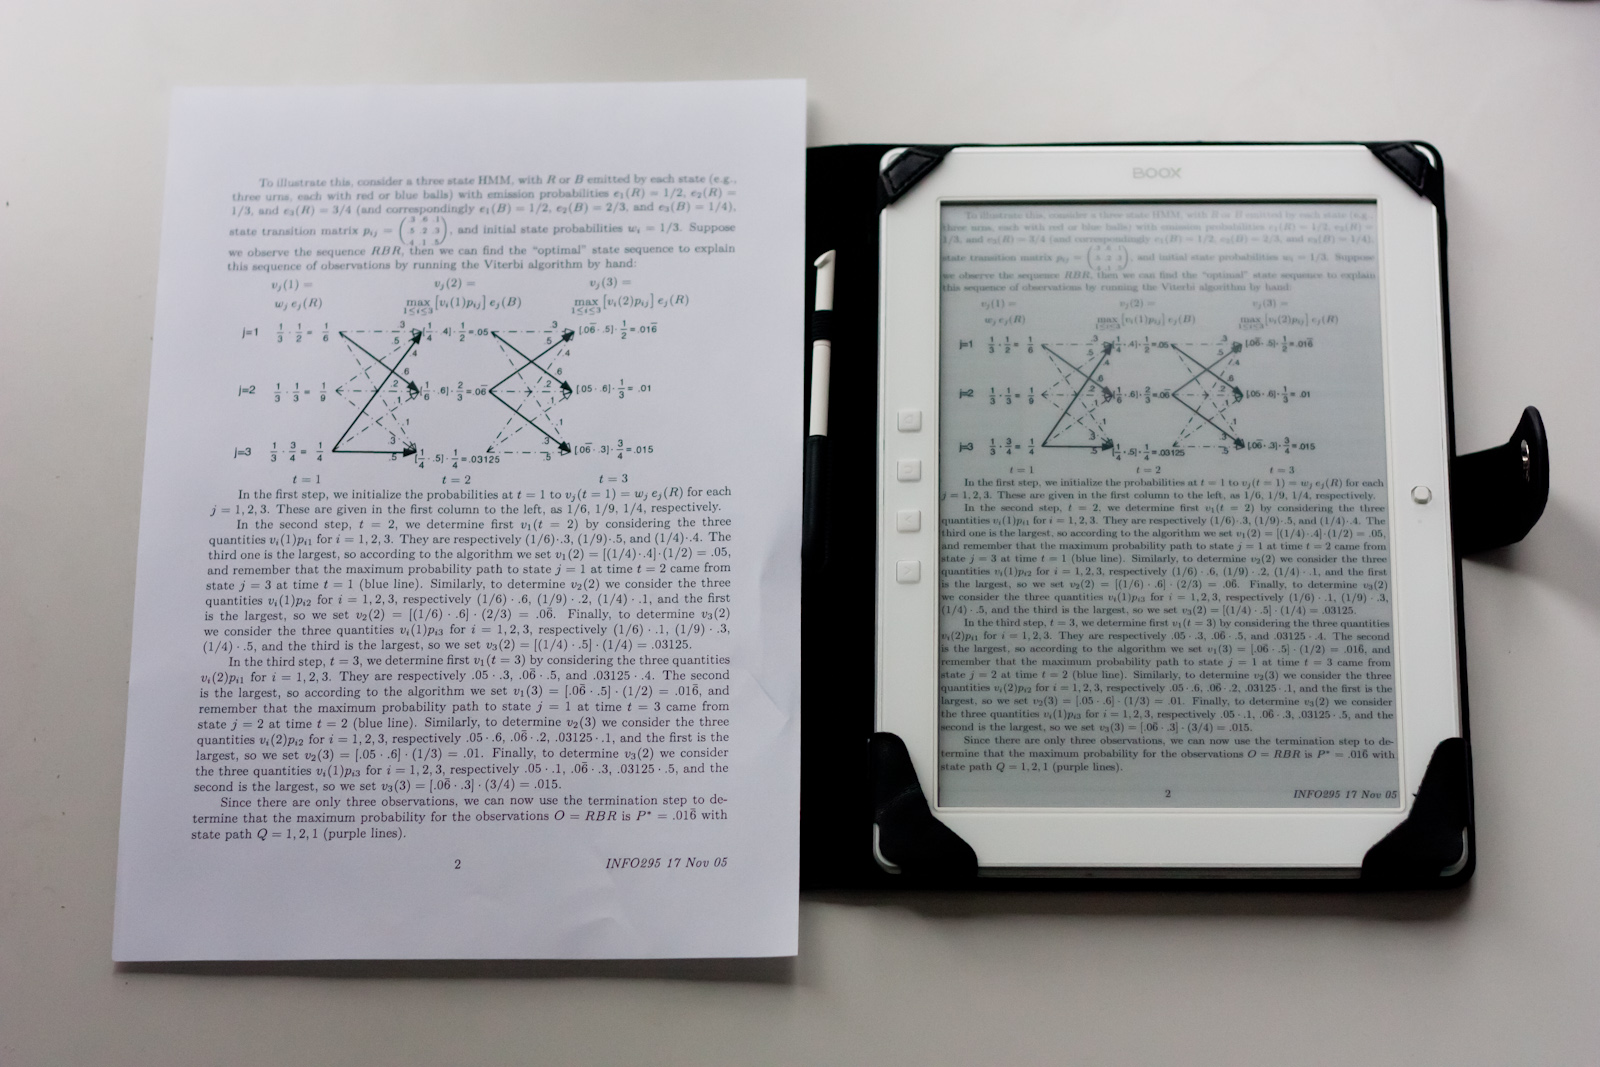 To illustrate this, consider a three state HMM, with R or B emitted by each state (e.g.,
three urns, each with red or blue balls) with emission probabilities e₁(R) = 1/2, e₂(R) =
1/3, and e₃(R) = 3/4 (and correspondingly e₁(B) = 1/2, e₂(B) = 2/3, and e₃(B) = 1/4),
.3 .6 .1
state transition matrix pᵢⱼ = ( .5 .2 .3 ), and initial state probabilities wᵢ = 1/3. Suppose
.4 .1 .5
we observe the sequence RBR, then we can find the “optimal” state sequence to explain
this sequence of observations by running the Viterbi algorithm by hand:
vⱼ(1) = vⱼ(2) = vⱼ(3) =
wⱼ eⱼ(R) max [vᵢ(1)pᵢⱼ] eⱼ(B) max [vᵢ(2)pᵢⱼ] eⱼ(R)
1≤i≤3 1≤i≤3
j=1 1/3 · 1/2 = 1/6 .3 [1/4 · .4] · 1/2 = .05 .3 [.06̄ · .5] · 1/2 = .016̄
.5 .4 .6 .5 .4 .6
j=2 1/3 · 1/3 = 1/9 .2 [1/6 · .6] · 2/3 = .06̄ .2 [.05 · .6] · 1/3 = .01
.1 .1 .3 .1 .1 .3
j=3 1/3 · 3/4 = 1/4 .5 [1/4 · .5] · 1/4 = .03125 .5 [.06̄ · .3] · 3/4 = .015
t = 1 t = 2 t = 3
In the first step, we initialize the probabilities at t = 1 to vⱼ(t = 1) = wⱼ eⱼ(R) for each
j = 1, 2, 3. These are given in the first column to the left, as 1/6, 1/9, 1/4, respectively.
In the second step, t = 2, we determine first v₁(t = 2) by considering the three
quantities vᵢ(1)pᵢ₁ for i = 1, 2, 3. They are respectively (1/6)·.3, (1/9)·.5, and (1/4)·.4. The
third one is the largest, so according to the algorithm we set v₁(2) = [(1/4)·.4]·(1/2) = .05,
and remember that the maximum probability path to state j = 1 at time t = 2 came from
state j = 3 at time t = 1 (blue line). Similarly, to determine v₂(2) we consider the three
quantities vᵢ(1)pᵢ₂ for i = 1, 2, 3, respectively (1/6) · .6, (1/9) · .2, (1/4) · .1, and the first
is the largest, so we set v₂(2) = [(1/6) · .6] · (2/3) = .06̄. Finally, to determine v₃(2)
we consider the three quantities vᵢ(1)pᵢ₃ for i = 1, 2, 3, respectively (1/6) · .1, (1/9) · .3,
(1/4) · .5, and the third is the largest, so we set v₃(2) = [(1/4) · .5] · (1/4) = .03125.
In the third step, t = 3, we determine first v₁(t = 3) by considering the three quantities
vᵢ(2)pᵢ₁ for i = 1, 2, 3. They are respectively .05 · .3, .06̄ · .5, and .03125 · .4. The second
is the largest, so according to the algorithm we set v₁(3) = [.06̄ · .5] · (1/2) = .016̄, and
remember that the maximum probability path to state j = 1 at time t = 3 came from
state j = 2 at time t = 2 (blue line). Similarly, to determine v₂(3) we consider the three
quantities vᵢ(2)pᵢ₂ for i = 1, 2, 3, respectively .05 · .6, .06̄ · .2, .03125 · .1, and the first is the
largest, so we set v₂(3) = [.05 · .6] · (1/3) = .01. Finally, to determine v₃(2) we consider
the three quantities vᵢ(1)pᵢ₃ for i = 1, 2, 3, respectively .05 · .1, .06̄ · .3, .03125 · .5, and the
second is the largest, so we set v₃(3) = [.06̄ · .3] · (3/4) = .015.
Since there are only three observations, we can now use the termination step to de-
termine that the maximum probability for the observations O = RBR is P* = .016̄ with
state path Q = 1, 2, 1 (purple lines).
2 INFO295 17 Nov 05
BOOX
To illustrate this, consider a three state HMM, with R or B emitted by each state (e.g.,
three urns, each with red or blue balls) with emission probabilities e₁(R) = 1/2, e₂(R) =
1/3, and e₃(R) = 3/4 (and correspondingly e₁(B) = 1/2, e₂(B) = 2/3, and e₃(B) = 1/4),
.3 .6 .1
state transition matrix pᵢⱼ = ( .5 .2 .3 ), and initial state probabilities wᵢ = 1/3. Suppose
.4 .1 .5
we observe the sequence RBR, then we can find the “optimal” state sequence to explain
this sequence of observations by running the Viterbi algorithm by hand:
vⱼ(1) = vⱼ(2) = vⱼ(3) =
wⱼ eⱼ(R) max [vᵢ(1)pᵢⱼ] eⱼ(B) max [vᵢ(2)pᵢⱼ] eⱼ(R)
1≤i≤3 1≤i≤3
j=1 1/3 · 1/2 = 1/6 .3 [1/4 · .4] · 1/2 = .05 .3 [.06̄ · .5] · 1/2 = .016̄
.5 .4 .6 .5 .4 .6
j=2 1/3 · 1/3 = 1/9 .2 [1/6 · .6] · 2/3 = .06̄ .2 [.05 · .6] · 1/3 = .01
.1 .1 .3 .1 .1 .3
j=3 1/3 · 3/4 = 1/4 .5 [1/4 · .5] · 1/4 = .03125 .5 [.06̄ · .3] · 3/4 = .015
t = 1 t = 2 t = 3
In the first step, we initialize the probabilities at t = 1 to vⱼ(t = 1) = wⱼ eⱼ(R) for each
j = 1, 2, 3. These are given in the first column to the left, as 1/6, 1/9, 1/4, respectively.
In the second step, t = 2, we determine first v₁(t = 2) by considering the three
quantities vᵢ(1)pᵢ₁ for i = 1, 2, 3. They are respectively (1/6)·.3, (1/9)·.5, and (1/4)·.4. The
third one is the largest, so according to the algorithm we set v₁(2) = [(1/4)·.4]·(1/2) = .05,
and remember that the maximum probability path to state j = 1 at time t = 2 came from
state j = 3 at time t = 1 (blue line). Similarly, to determine v₂(2) we consider the three
quantities vᵢ(1)pᵢ₂ for i = 1, 2, 3, respectively (1/6) · .6, (1/9) · .2, (1/4) · .1, and the first
is the largest, so we set v₂(2) = [(1/6) · .6] · (2/3) = .06̄. Finally, to determine v₃(2)
we consider the three quantities vᵢ(1)pᵢ₃ for i = 1, 2, 3, respectively (1/6) · .1, (1/9) · .3,
(1/4) · .5, and the third is the largest, so we set v₃(2) = [(1/4) · .5] · (1/4) = .03125.
In the third step, t = 3, we determine first v₁(t = 3) by considering the three quantities
vᵢ(2)pᵢ₁ for i = 1, 2, 3. They are respectively .05 · .3, .06̄ · .5, and .03125 · .4. The second
is the largest, so according to the algorithm we set v₁(3) = [.06̄ · .5] · (1/2) = .016̄, and
remember that the maximum probability path to state j = 1 at time t = 3 came from
state j = 2 at time t = 2 (blue line). Similarly, to determine v₂(3) we consider the three
quantities vᵢ(2)pᵢ₂ for i = 1, 2, 3, respectively .05 · .6, .06̄ · .2, .03125 · .1, and the first is the
largest, so we set v₂(3) = [.05 · .6] · (1/3) = .01. Finally, to determine v₃(2) we consider
the three quantities vᵢ(1)pᵢ₃ for i = 1, 2, 3, respectively .05 · .1, .06̄ · .3, .03125 · .5, and the
second is the largest, so we set v₃(3) = [.06̄ · .3] · (3/4) = .015.
Since there are only three observations, we can now use the termination step to de-
termine that the maximum probability for the observations O = RBR is P* = .016̄ with
state path Q = 1, 2, 1 (purple lines).
2 INFO295 17 Nov 05